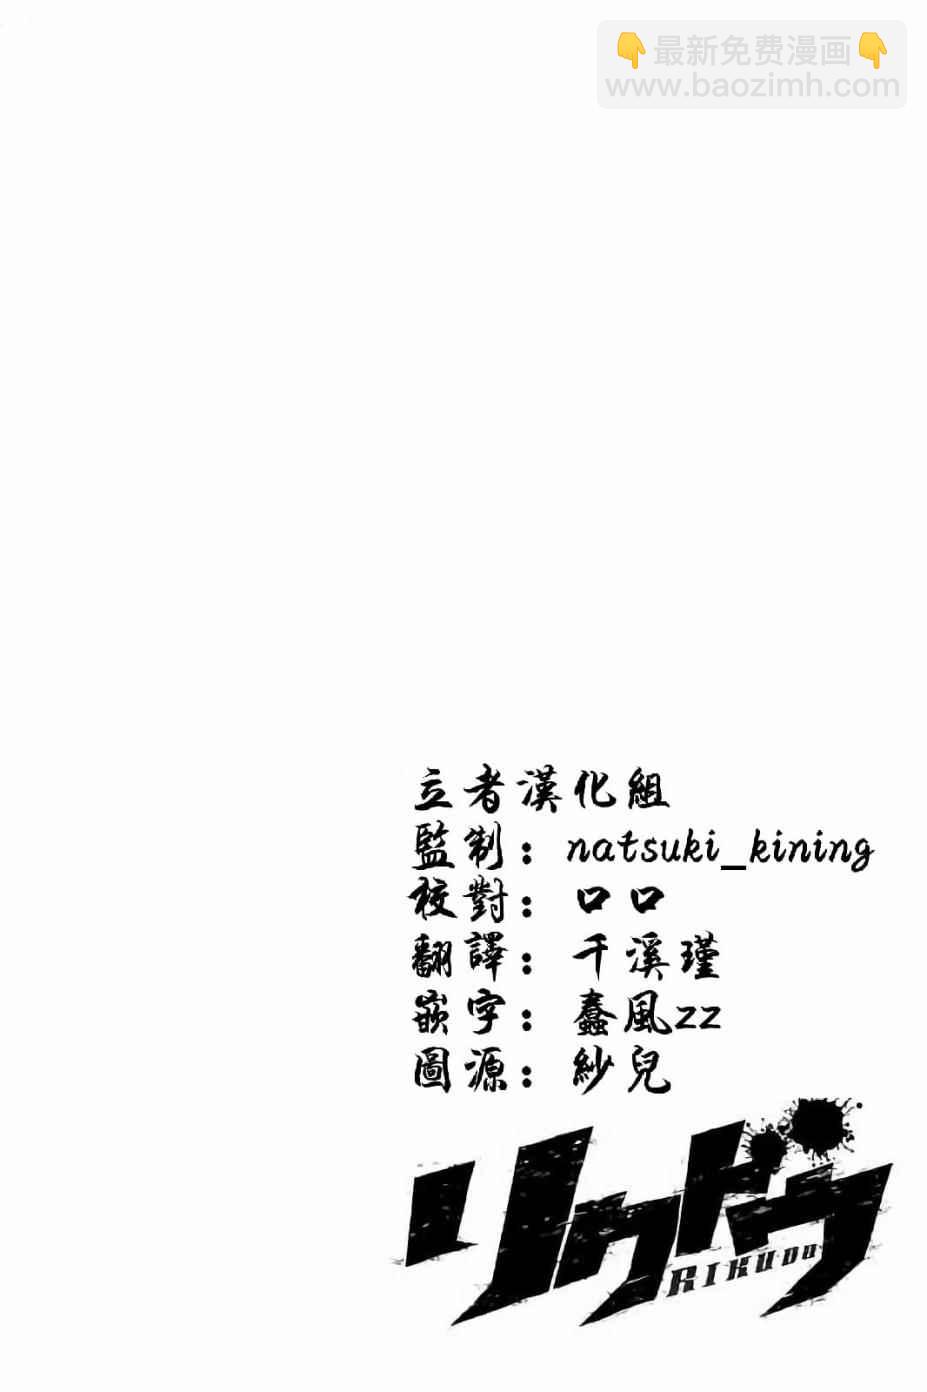 👇最新免费漫画👇
www.baozimh.com
立者漢化組
監制：natsuki_kining
校對：口口
翻譯：千溪瑾
嵌字：蠢風zz
圖源：紗兒
リクドウ
RIKUDO